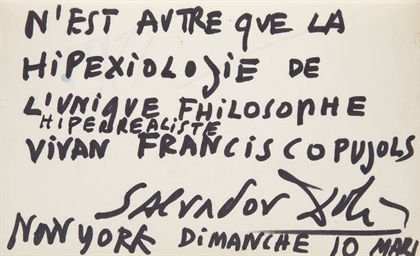 N'EST AUTRE QUE LA
HIPEXIOLOJIE DE
L'UNIQUE FHILOSOPHE
HIPERREALISTE
VIVAN FRANCISCO PUJOLS
SALVADOR Dali
NOWYORK DIMANCHE 10 MARI